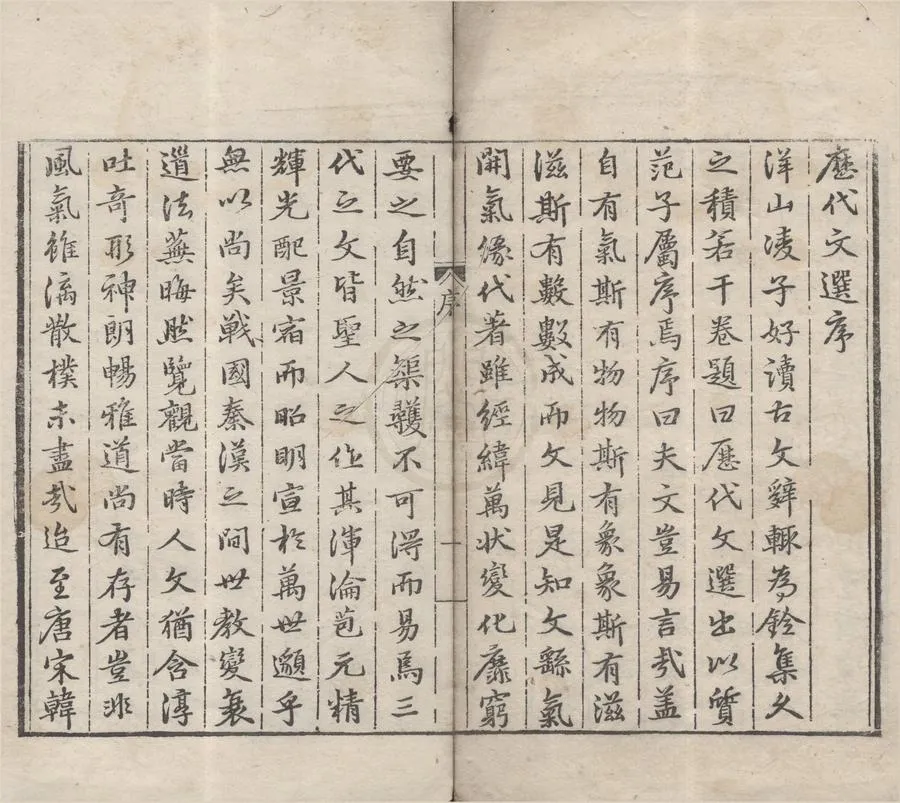 歷代文選序
洋山凌子好讀古文辭輒為銓集久
之積若干卷題曰歷代文選出以質
范子屬序焉序曰夫文豈易言哉盖
自有氣斯有物物斯有象象斯有滋
滋斯有數數成而文見是知文繇氣
開氣像代著雖經緯萬狀變化靡窮
序
一
要之自然之榘矱不可得而易焉三
代之文皆聖人之作其渾淪苞元精
輝光配景宿而昭明宣於萬世邈乎
無以尚矣戦國秦漢之間世教變衰
道法蕪晦然覽觀當時人文猶含淳
吐奇形神朗暢雅道尚有存者豈非
風氣雖漓散樸未盡哉迨至唐宋韓